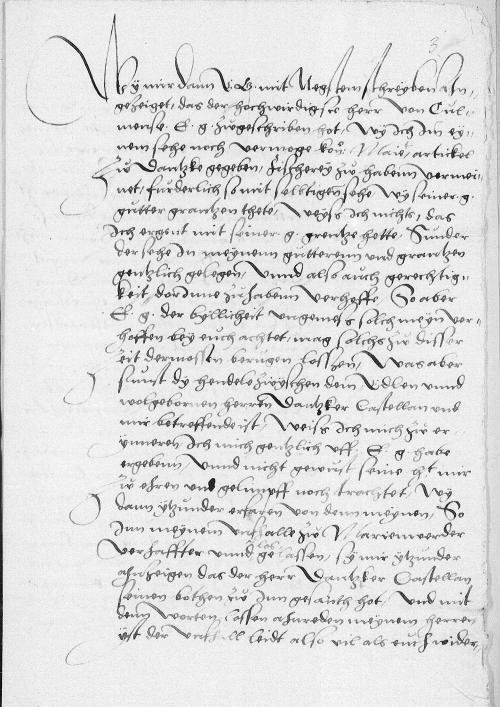 3
Wy mir dann E. G. mit Negstem schreyben an
gezeiget, das der hochwirdigste herr von Cul-
mense, E. g. zugeschriben hot, Wy Ich Inn ey-
nem sehe noch vermoge kon: Maie: artickel
zw Dantzke gegeben, fischerey zw habenn vermei-
net, furderlich so mit selbtigen sehe wy seiner g.
gutter grantzen thete, Weyss Ich nichts, das
Ich ergent mit seiner g. grentze hette, Sunder
der sehe In meynenn guttern und grantzen
gentzlich gelegen, Unnd also auch gerechtig-
keit dorInne zu habenn verhoffe, So aber
E. g. der byllicheit ungemess solch meyn ver-
hoffen bey euch achtet, mag solchs zw disser
zeit dermossen berugen lossen, Was aber
sunst dy hendele zwyschen dem Edlen unnd
wolgebornen herren Dantzker Castellan und
mir betreffende ist, Weiss Ich mich zw er-
ynneren Ich mich gentzlich uff E. g. habe
ergebenn, Unnd nicht gewust seine g. mir
zw ehren und gelimpff noch trachtet, Wy
dann ytzunder erfaren von denn meynen, So
Inn meynem unfalle zw Marienwerder
verhaffter unnd gelassen, sy mir ytzunder
ahnzeigen das der herr Dantzker Castellan
seinen bothen zu Inn gesanth hot, Und mit
denn worten lassen ahnreden meynem herren
yst der unfall leidt also vil als euch wider-